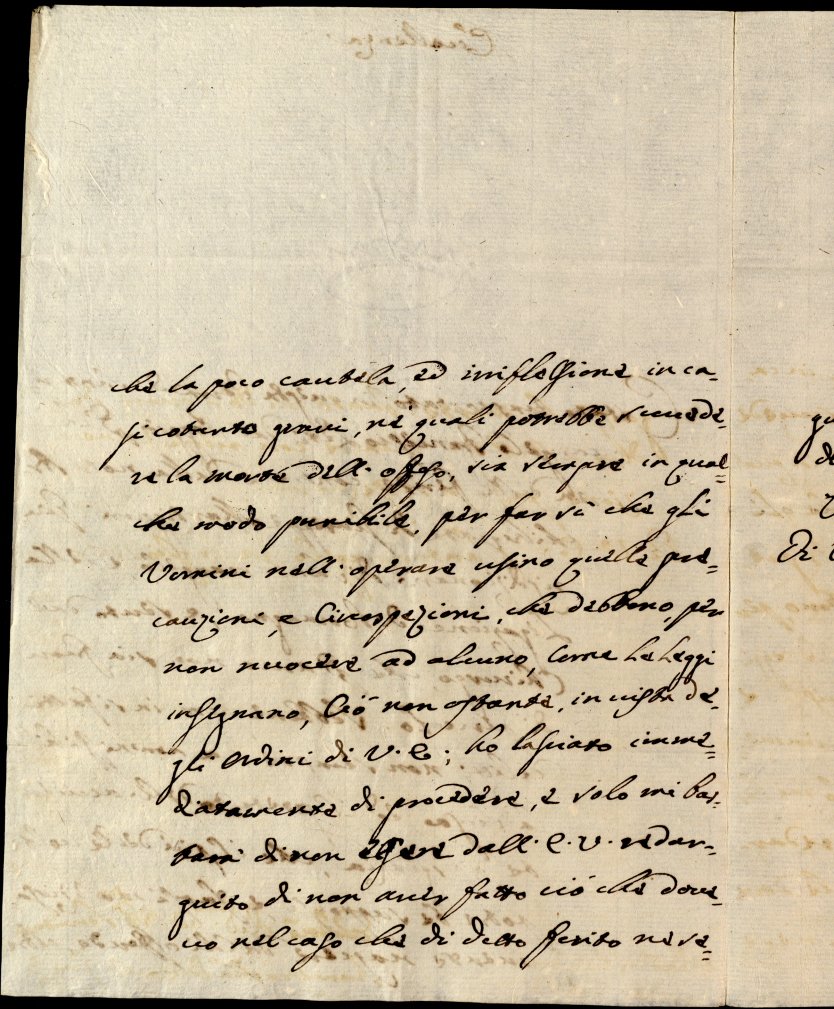 che la poco cautela, ed inriflessione in ca-
si cotanto gravi, ne' quali potrebbe succede-
re la morte dell' offeso, sia sempre in qual-
che modo punibile, per far sì che gli
Uomini nell' operare usino quelle pre-
cauzioni, e Circospezioni, che debbono, per
non nuocere ad alcuno, come le Leggi
insegnano, Ciò non ostante, in vista de-
gli Ordini di V. E.; ho lasciato imme-
diatamente di procedere, e solo mi bas-
tarà di non essere dall' E. V. redar-
guito di non aver fatto ciò che dove-
vo nel caso che di detto ferito ne se-
gu
de
Di